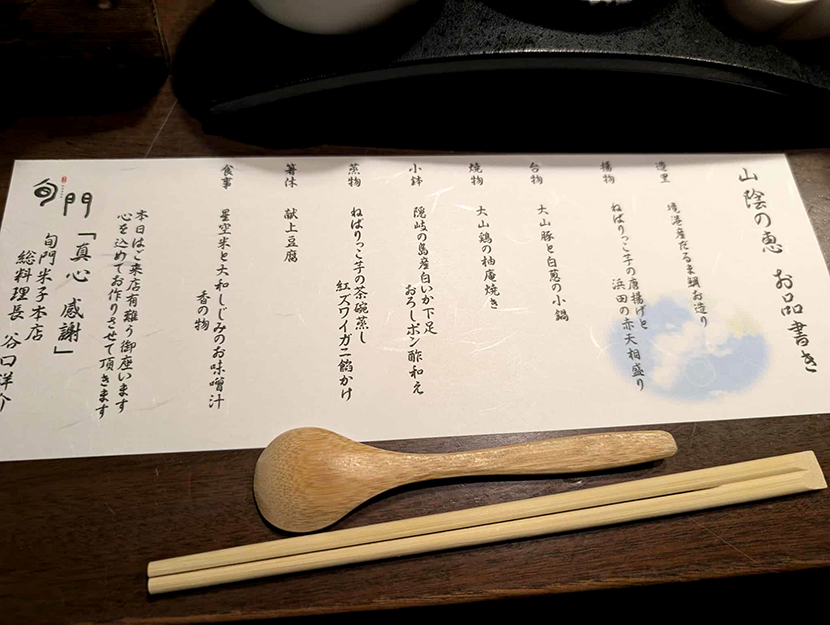 山陰の恵 お品書き
造里 境港産だるま鯛お造り
揚物 ねばりっこ芋の唐揚げと
浜田の赤天相盛り
台物 大山豚と白葱の小鍋
焼物 大山鶏の柚庵焼き
小鉢 隠岐の島産白いか下足
おろしポン酢和え
蒸物 ねばりっこ芋の茶碗蒸し
紅ズワイガニ餡かけ
箸休 献上豆腐
食事 星空米と大和しじみのお味噌汁
香の物
本日はご来店有難う御座います
心を込めてお作りさせて頂きます
「真心 感謝」
旬門米子本店
総料理長 谷口洋介
旬門